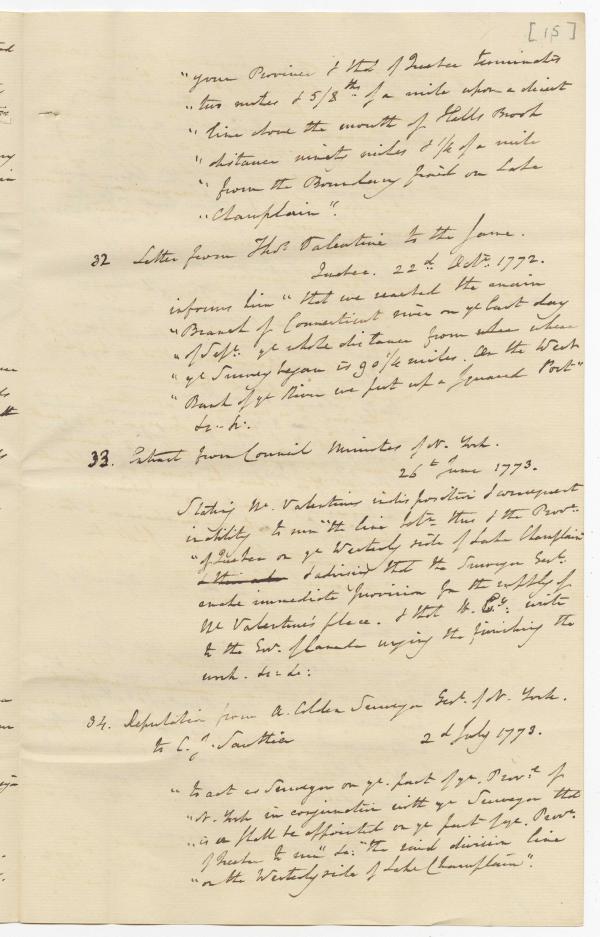 [15]
"your Province & that of Quebec terminates
"two miles & 5/8ths of a mile upon a direct
"line above the mouth of Halls Brook
"distance ninety miles & 1/4 of a mile
"from the Boundary fixed on Lake
"Champlain".
32 Letter from Thos. Valentine to the Same.
Quebec. 22d. Octr. 1772.
informs him "that we reached the main
"Branch of Connecticut river on ye last day
"of Sept. ye whole distance from where
"ye Survey began is 90 1/4 miles. On the West
"Bank of ye River we put up a Squared Post"
&c. &c.
33. Extract from Council Minutes of N. York.
26th June 1773.
Stating Mr. Valentines indisposition & consequent
inability to run "the line betn. this & the Provce.
"of Quebec on ye Westerly side of Lake Champlain
& advising that the Surveyor Genl.
make immediate provision for the supply of
Mr Valentine's place. & that H. Ey. write
to the Gov. of Canada urging the finishing the
work. &c &c:
34. Deputation from A. Colden Surveyor Genl. of N. York.
to C. J. Sauthier 2d July 1773.
"to act as Surveyor on ye. part of ye. Prove. of
"N. York in conjunction with ye Surveyor that
"is or shall be appointed on ye part of ye. Prove.
of Quebec to run" &c: "the said division line
"on the Westerly side of Lake Champlain".